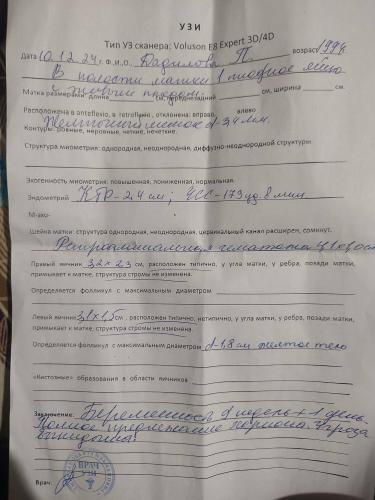 УЗИ
Тип УЗ сканера: Voluson E8 Expert 3D/4D
Дата 10.12.24 г. Ф.И.О. П. возраст 199
В полости матки 1 плодное яйцо
с живым плодом.
Матка размерами: длина см, переднезадний см, ширина см.
Расположена в anteflexio, в retroflexio, отклонена: вправо, влево
Желточный мешок d-3,4 мм.
Контуры: ровные, неровные, четкие, нечеткие.
Структура миометрия: однородная, неоднородная, диффузно-неоднородной структуры.
Экогенность миометрия: повышенная, пониженная, нормальная.
Эндометрий КТР-2,4 см, ЧСС-173 уд. в мин.
М-эхо-
Шейка матки: структура однородная, неоднородная, цервикальный канал расширен, сомкнут.
Ретрохориальная гематома
Правый яичник 3,2 x 2,3 см, расположен типично, у угла матки, у ребра, позади матки,
примыкает к матке, структура стромы не изменена.
Определяется фолликул с максимальным диаметром
Левый яичник 3,1 x 1,5 см, расположен типично, нетипично, у угла матки, у ребра, позади матки,
примыкает к матке, структура стромы не изменена.
Определяется фолликул с максимальным диаметром d-1,8 см желтое тело
«Кистозные» образования в области яичников
Заключение: Беременность 9 недель + 1 день.
Полное предлежание хориона. Угроза
выкидыша.
Врач:
ВРАЧ
УЗИ